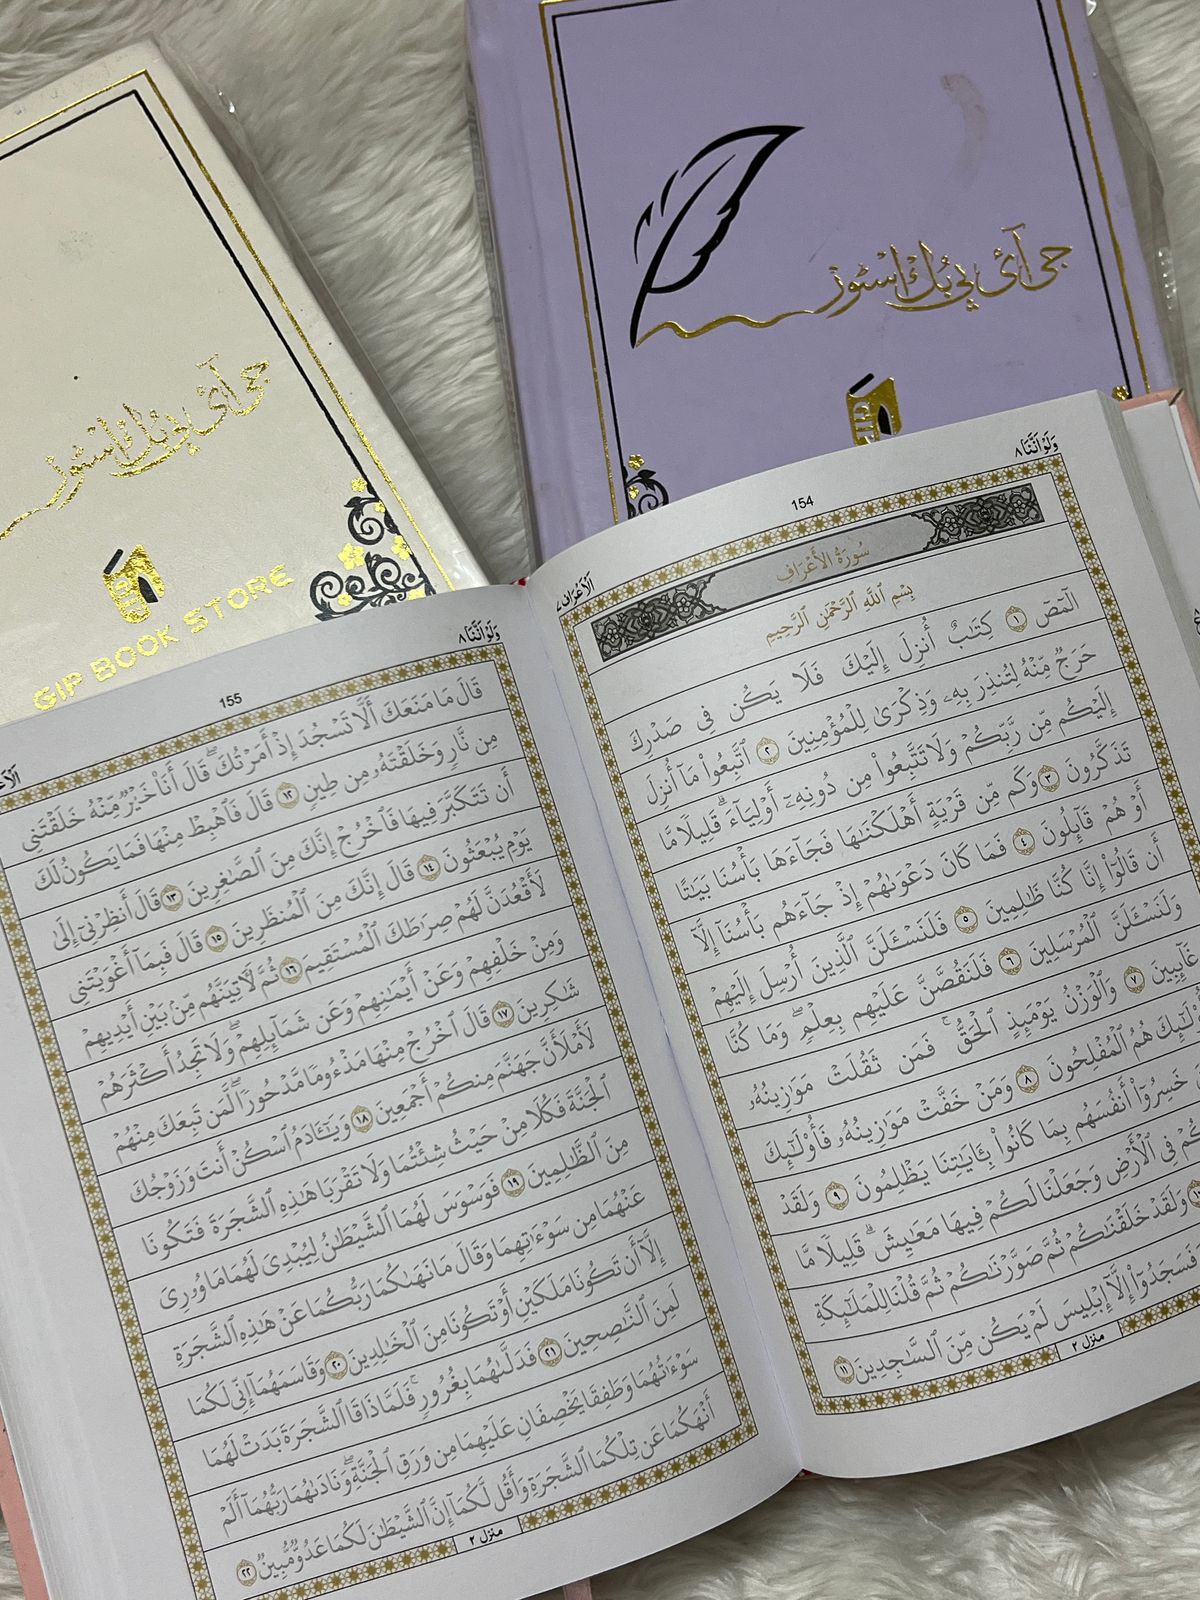 جی آئ پی بُک اسٹور
جی آئ پی بُک اسٹور
GIP BOOK STORE
وَلَوۡ اَنَّنَا ٨
154
اَلۡاَعۡرَاف ٧
سُورَةُ الأَعۡرَافِ
بِسۡمِ ٱللَّهِ ٱلرَّحۡمَٰنِ ٱلرَّحِيمِ
الٓمٓصٓ ١ كِتَٰبٌ أُنزِلَ إِلَيۡكَ فَلَا يَكُن فِي صَدۡرِكَ
حَرَجٌ مِّنۡهُ لِتُنذِرَ بِهِۦ وَذِكۡرَىٰ لِلۡمُؤۡمِنِينَ ٢ ٱتَّبِعُواْ مَآ أُنزِلَ
إِلَيۡكُم مِّن رَّبِّكُمۡ وَلَا تَتَّبِعُواْ مِن دُونِهِۦٓ أَوۡلِيَآءَۗ قَلِيلٗا مَّا
تَذَكَّرُونَ ٣ وَكَم مِّن قَرۡيَةٍ أَهۡلَكۡنَٰهَا فَجَآءَهَا بَأۡسُنَا بَيَٰتًا
أَوۡ هُمۡ قَآئِلُونَ ٤ فَمَا كَانَ دَعۡوَىٰهُمۡ إِذۡ جَآءَهُم بَأۡسُنَآ إِلَّآ
أَن قَالُوٓاْ إِنَّا كُنَّا ظَٰلِمِينَ ٥ فَلَنَسۡـَٔلَنَّ ٱلَّذِينَ أُرۡسِلَ إِلَيۡهِمۡ
وَلَنَسۡـَٔلَنَّ ٱلۡمُرۡسَلِينَ ٦ فَلَنَقُصَّنَّ عَلَيۡهِم بِعِلۡمٖۖ وَمَا كُنَّا
غَآئِبِينَ ٧ وَٱلۡوَزۡنُ يَوۡمَئِذٍ ٱلۡحَقُّۚ فَمَن ثَقُلَتۡ مَوَٰزِينُهُۥ
فَأُوْلَٰٓئِكَ هُمُ ٱلۡمُفۡلِحُونَ ٨ وَمَنۡ خَفَّتۡ مَوَٰزِينُهُۥ فَأُوْلَٰٓئِكَ
خَسِرُوٓاْ أَنفُسَهُم بِمَا كَانُواْ بِـَٔايَٰتِنَا يَظۡلِمُونَ ٩ وَلَقَدۡ
فِي ٱلۡأَرۡضِ وَجَعَلۡنَا لَكُمۡ فِيهَا مَعَٰيِشَۗ قَلِيلٗا مَّا
وَلَقَدۡ خَلَقۡنَٰكُمۡ ثُمَّ صَوَّرۡنَٰكُمۡ ثُمَّ قُلۡنَا لِلۡمَلَٰٓئِكَةِ
فَسَجَدُوٓاْ إِلَّآ إِبۡلِيسَ لَمۡ يَكُن مِّنَ ٱلسَّٰجِدِينَ ١١
منزل ٢
وَلَوۡ اَنَّنَا ٨
155
قَالَ مَا مَنَعَكَ أَلَّا تَسۡجُدَ إِذۡ أَمَرۡتُكَۖ قَالَ أَنَا۠ خَيۡرٞ مِّنۡهُ خَلَقۡتَنِي
مِن نَّارٖ وَخَلَقۡتَهُۥ مِن طِينٖ ١٢ قَالَ فَٱهۡبِطۡ مِنۡهَا فَمَا يَكُونُ لَكَ
أَن تَتَكَبَّرَ فِيهَا فَٱخۡرُجۡ إِنَّكَ مِنَ ٱلصَّٰغِرِينَ ١٣ قَالَ أَنظِرۡنِيٓ إِلَىٰ
يَوۡمِ يُبۡعَثُونَ ١٤ قَالَ إِنَّكَ مِنَ ٱلۡمُنظَرِينَ ١٥ قَالَ فَبِمَآ أَغۡوَيۡتَنِي
لَأَقۡعُدَنَّ لَهُمۡ صِرَٰطَكَ ٱلۡمُسۡتَقِيمَ ١٦ ثُمَّ لَأٓتِيَنَّهُم مِّنۢ بَيۡنِ أَيۡدِيهِمۡ
وَمِنۡ خَلۡفِهِمۡ وَعَنۡ أَيۡمَٰنِهِمۡ وَعَن شَمَآئِلِهِمۡۖ وَلَا تَجِدُ أَكۡثَرَهُمۡ
شَٰكِرِينَ ١٧ قَالَ ٱخۡرُجۡ مِنۡهَا مَذۡءُومٗا مَّدۡحُورٗاۖ لَّمَن تَبِعَكَ مِنۡهُمۡ
لَأَمۡلَأَنَّ جَهَنَّمَ مِنكُمۡ أَجۡمَعِينَ ١٨ وَيَٰٓـَٔادَمُ ٱسۡكُنۡ أَنتَ وَزَوۡجُكَ
ٱلۡجَنَّةَ فَكُلَا مِنۡ حَيۡثُ شِئۡتُمَا وَلَا تَقۡرَبَا هَٰذِهِ ٱلشَّجَرَةَ فَتَكُونَا
مِنَ ٱلظَّٰلِمِينَ ١٩ فَوَسۡوَسَ لَهُمَا ٱلشَّيۡطَٰنُ لِيُبۡدِيَ لَهُمَا مَا وُۥرِيَ
عَنۡهُمَا مِن سَوۡءَٰتِهِمَا وَقَالَ مَا نَهَىٰكُمَا رَبُّكُمَا عَنۡ هَٰذِهِ ٱلشَّجَرَةِ
إِلَّآ أَن تَكُونَا مَلَكَيۡنِ أَوۡ تَكُونَا مِنَ ٱلۡخَٰلِدِينَ ٢٠ وَقَاسَمَهُمَآ إِنِّي لَكُمَا
لَمِنَ ٱلنَّٰصِحِينَ ٢١ فَدَلَّىٰهُمَا بِغُرُورٖۚ فَلَمَّا ذَاقَا ٱلشَّجَرَةَ بَدَتۡ لَهُمَا
سَوۡءَٰتُهُمَا وَطَفِقَا يَخۡصِفَانِ عَلَيۡهِمَا مِن وَرَقِ ٱلۡجَنَّةِۖ وَنَادَىٰهُمَا رَبُّهُمَآ أَلَمۡ
أَنۡهَكُمَا عَن تِلۡكُمَا ٱلشَّجَرَةِ وَأَقُل لَّكُمَآ إِنَّ ٱلشَّيۡطَٰنَ لَكُمَا عَدُوّٞ مُّبِينٞ ٢٢
منزل ٢